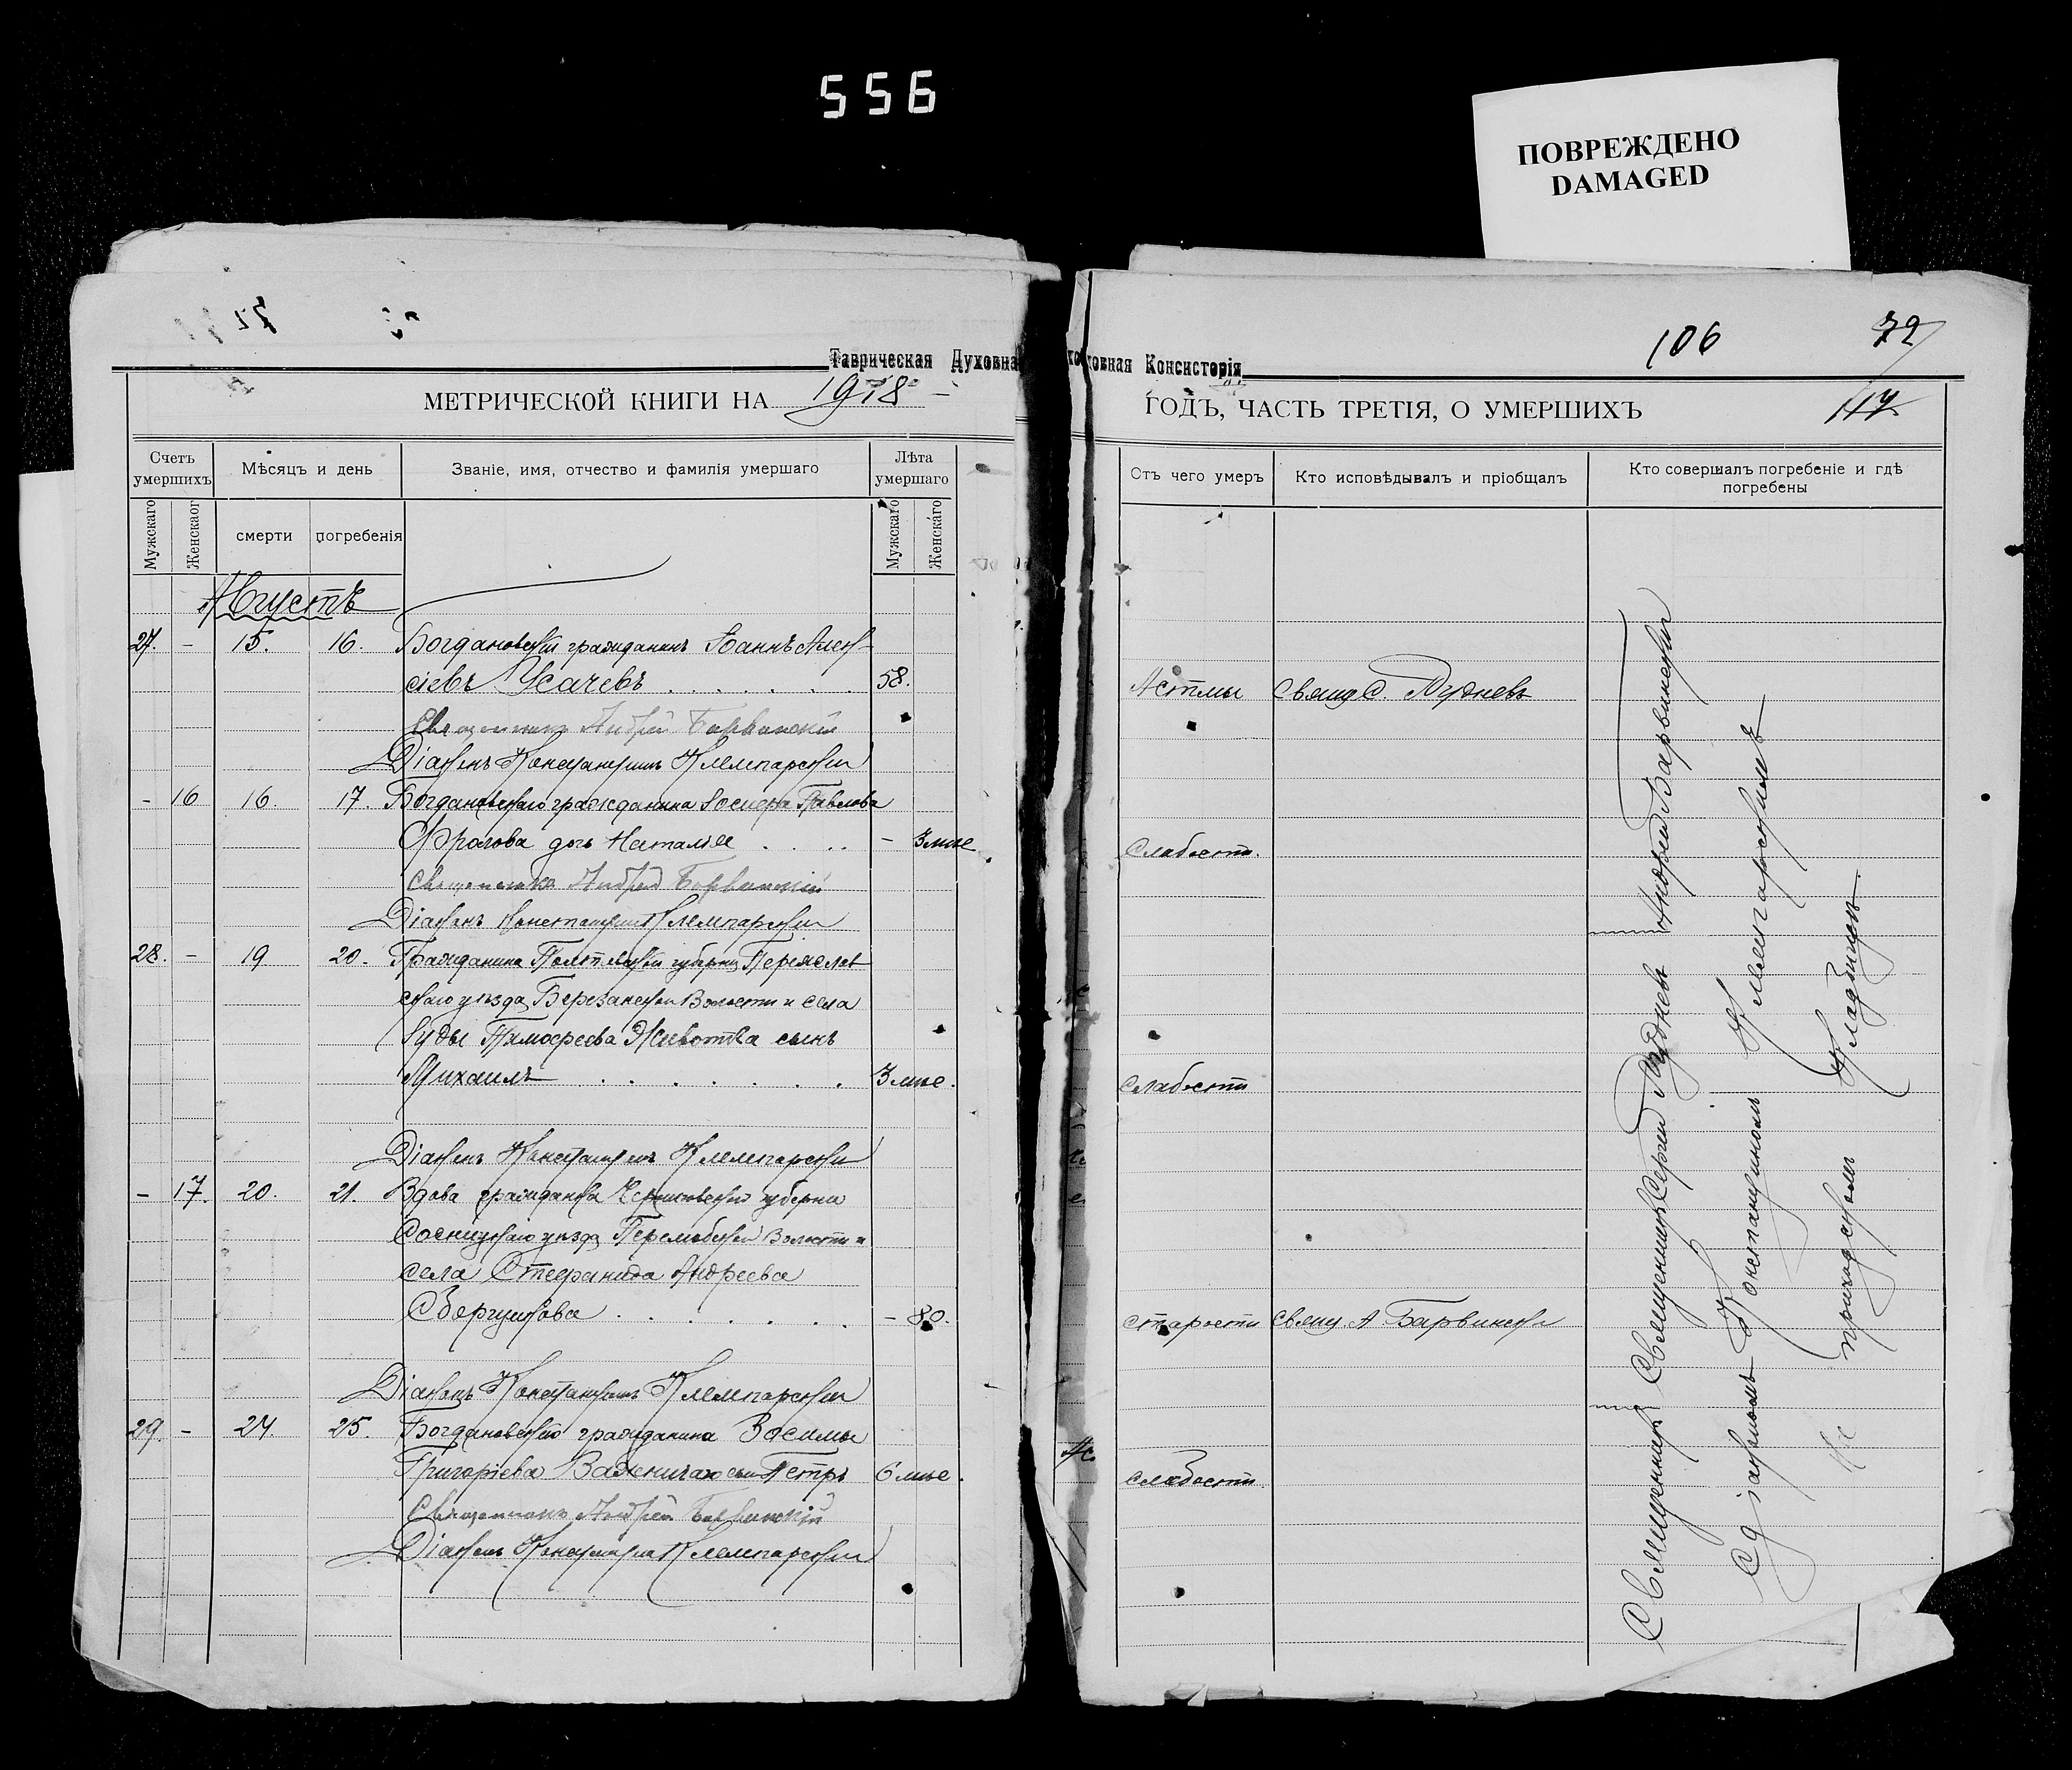 556
ПОВРЕЖДЕНО
DAMAGED
106
72
117
Таврическая Духовная Консисторія
МЕТРИЧЕСКОЙ КНИГИ НА 1918
ГОДЪ, ЧАСТЬ ТРЕТІЯ, О УМЕРШИХЪ
Счетъ умершихъ
Мѣсяцъ и день
Званіе, имя, отчество и фамилія умершаго
Лѣта умершаго
Мужскаго
Женскаог
смерти
погребенія
Мужскаго
Женскаго
Стъ чего умеръ
Кто исповѣдывалъ и пріобщалъ
Кто совершалъ погребеніе и гдѣ
погребены
Августъ
27. - 15. 16. Богдановскій гражданинъ Іоаннъ Алек-
сіевъ Усачевъ 58. Астмы Свящ. С. Рудневъ
Священникъ Андрей Барвинскій
Діаконъ Константинъ Клемпарскій
- 16 16. 17. Богдановскаго гражданина Іосифа Павлова
Фролова дочь Наталія - 3 мце Слабости.
Священникъ Андрей Барвинскій
Діаконъ Константинъ Клемпарскій
28. - 19 20. Гражданина Полтавской губерніи Переяслав
скаго уѣзда Березанской Волости и села
Іуды Тимофеева Животова сынъ
Михаилъ 3 мце. слабости
Діаконъ Константинъ Клемпарскій
- 17. 20. 21. Вдова гражданка Черниговской губерніи
Сосницкаго уѣзда Волости и
села Стефанида Андреева
- 80. старости Свящ. А Барвинскій
Діаконъ Константинъ Клемпарскій
29. - 24. 25. Богдановскаго гражданина Зосимы
Григоріева сынъ Петръ 6 мце. слабости
Священникъ Андрей Барвинскій
Діаконъ Константинъ Клемпарскій
Священникъ Священникъ Сергій Рудневъ Андрей Барвинскій
Съ діакономъ Константиномъ Клемпарскимъ
На приходскомъ кладбищѣ